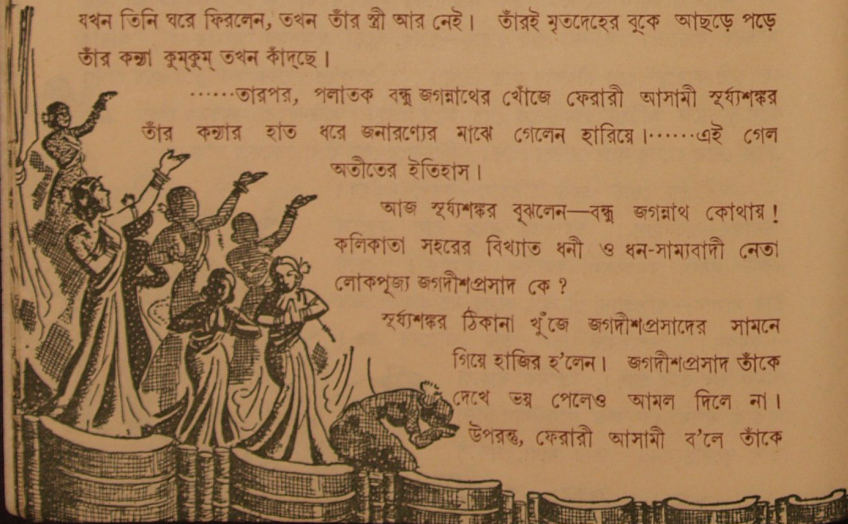 যখন তিনি ঘরে ফিরলেন, তখন তাঁর স্ত্রী আর নেই। তাঁরই মৃতদেহের বুকে আছড়ে পড়ে
তাঁর কন্যা কুম্‌কুম্ তখন কাঁদ্‌ছে।
······তারপর, পলাতক বন্ধু জগন্নাথের খোঁজে ফেরারী আসামী সূর্য্যশঙ্কর
তাঁর কন্যার হাত ধরে জনারণ্যের মাঝে গেলেন হারিয়ে।······এই গেল
অতীতের ইতিহাস।
আজ সূর্য্যশঙ্কর বুঝলেন—বন্ধু জগন্নাথ কোথায়!
কলিকাতা সহরের বিখ্যাত ধনী ও ধন-সাম্যবাদী নেতা
লোকপূজ্য জগদীশপ্রসাদ কে?
সূর্য্যশঙ্কর ঠিকানা খুঁজে জগদীশপ্রসাদের সামনে
গিয়ে হাজির হ'লেন। জগদীশপ্রসাদ তাঁকে
দেখে ভয় পেলেও আমল দিলে না।
উপরন্তু, ফেরারী আসামী ব'লে তাঁকে